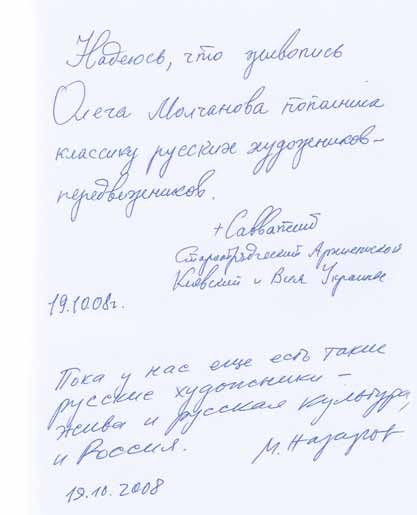 Надеюсь, что живопись
Олега Молчанова пополнила
классику русских художников-
передвижников.
+ Савватий
Старообрядческий Архиепископ
Киевский и Всея Украины
19.10.08г.
Пока у нас еще есть такие
русские художники -
жива и русская культура,
и Россия.
М. Назаров
19.10.2008